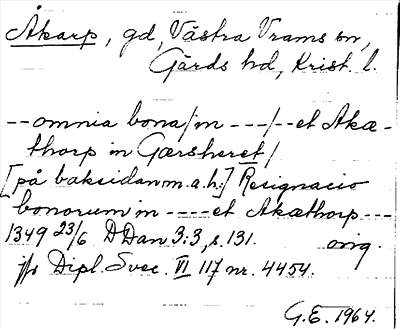 Åkarp, gd, Västra Vrams sn,
Gärds hd, Krist. l.
--omnia bona/in ---/--et Akæ-
thorp in Gærsheret/
[på baksidan m.a.h:] Resignacio
bonorum in ----et Akæthorp---
1349 23/6 DDan 3:3, s. 131. orig.
jfr Dipl. Svec. VI 117 nr. 4454.
G.E. 1964.